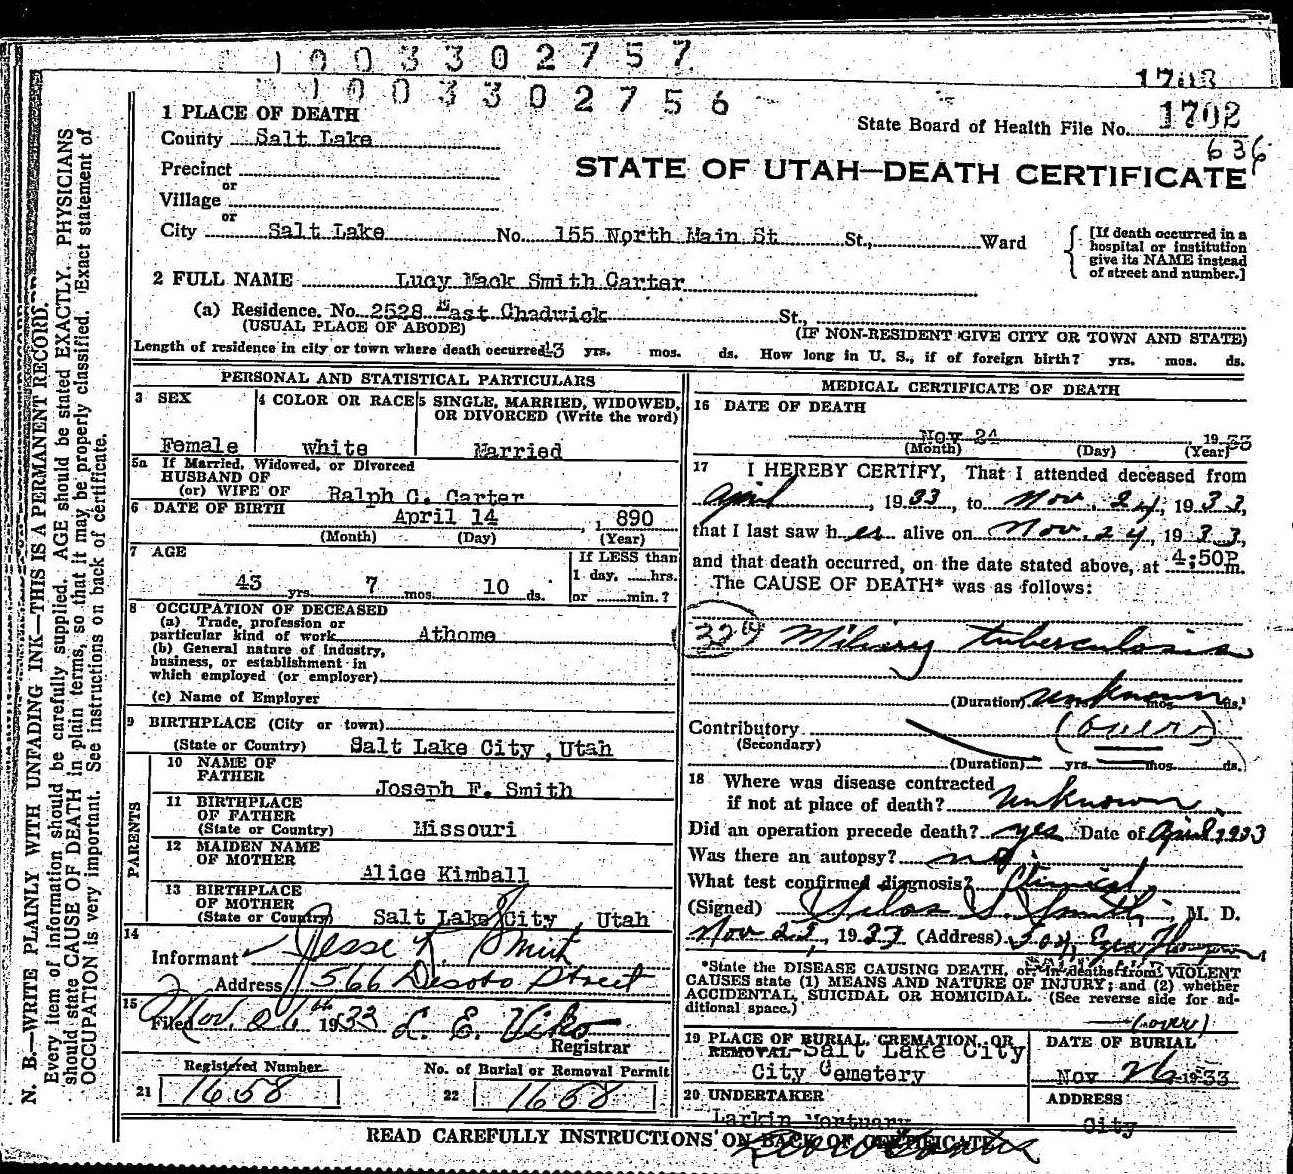 1003302757
1003302756
1703
1 PLACE OF DEATH
State Board of Health File No. 1702
636
County Salt Lake
STATE OF UTAH—DEATH CERTIFICATE
Precinct
or
Village
or
City Salt Lake No. 155 North Main St St., Ward
[If death occurred in a
hospital or institution
give its NAME instead
of street and number.]
2 FULL NAME Lucy Mack Smith Carter
(a) Residence. No. 2528 East Chadwick St.,
(USUAL PLACE OF ABODE) (IF NON-RESIDENT GIVE CITY OR TOWN AND STATE)
Length of residence in city or town where death occurred 43 yrs. mos. ds. How long in U. S., if of foreign birth? yrs. mos. ds.
PERSONAL AND STATISTICAL PARTICULARS
3 SEX
Female
4 COLOR OR RACE
White
5 SINGLE, MARRIED, WIDOWED,
OR DIVORCED (Write the word)
Married
5a If Married, Widowed, or Divorced
HUSBAND OF
(or) WIFE OF Ralph C. Carter
6 DATE OF BIRTH April 14, 1890
(Month) (Day) (Year)
7 AGE
43 yrs. 7 mos. 10 ds.
If LESS than
1 day, hrs.
or min.?
8 OCCUPATION OF DECEASED
(a) Trade, profession or
particular kind of work Athome
(b) General nature of industry,
business, or establishment in
which employed (or employer)
(c) Name of Employer
9 BIRTHPLACE (City or town)
(State or Country) Salt Lake City, Utah
PARENTS
10 NAME OF
FATHER
Joseph F. Smith
11 BIRTHPLACE
OF FATHER
(State or Country) Missouri
12 MAIDEN NAME
OF MOTHER
Alice Kimball
13 BIRTHPLACE
OF MOTHER
(State or Country) Salt Lake City, Utah
14
Informant Jesse K. Smith
Address 566 Desoto Street
15
Filed Nov. 26th 1933 L. E. Viko
Registrar
Registered Number
21 1658
No. of Burial or Removal Permit
22 1658
MEDICAL CERTIFICATE OF DEATH
16 DATE OF DEATH
Nov 24, 1933
(Month) (Day) (Year)
17 I HEREBY CERTIFY, That I attended deceased from
April, 1933, to Nov. 24, 1933,
that I last saw h er alive on Nov. 24, 1933,
and that death occurred, on the date stated above, at 4:50P m.
The CAUSE OF DEATH* was as follows:
Miliary tuberculosis
(Duration) unknown yrs. mos. ds.
Contributory (over)
(Secondary)
(Duration) yrs. mos. ds.
18 Where was disease contracted
if not at place of death? unknown
Did an operation precede death? yes Date of April 1933
Was there an autopsy? no
What test confirmed diagnosis? Clinical
(Signed) Silas S. Smith, M. D.
Nov 25, 1933 (Address)
*State the DISEASE CAUSING DEATH, or, in deaths from VIOLENT
CAUSES state (1) MEANS AND NATURE OF INJURY; and (2) whether
ACCIDENTAL, SUICIDAL OR HOMICIDAL. (See reverse side for ad-
ditional space.)
(over)
19 PLACE OF BURIAL, CREMATION, OR
REMOVAL Salt Lake City
City Cemetery
DATE OF BURIAL
Nov 26 1933
20 UNDERTAKER
Larkin Mortuary
ADDRESS
City
READ CAREFULLY INSTRUCTIONS ON BACK OF CERTIFICATE
N. B.—WRITE PLAINLY WITH UNFADING INK—THIS IS A PERMANENT RECORD.
Every item of information should be carefully supplied. AGE should be stated EXACTLY. PHYSICIANS
should state CAUSE OF DEATH in plain terms, so that it may be properly classified. Exact statement of
OCCUPATION is very important. See instructions on back of certificate.